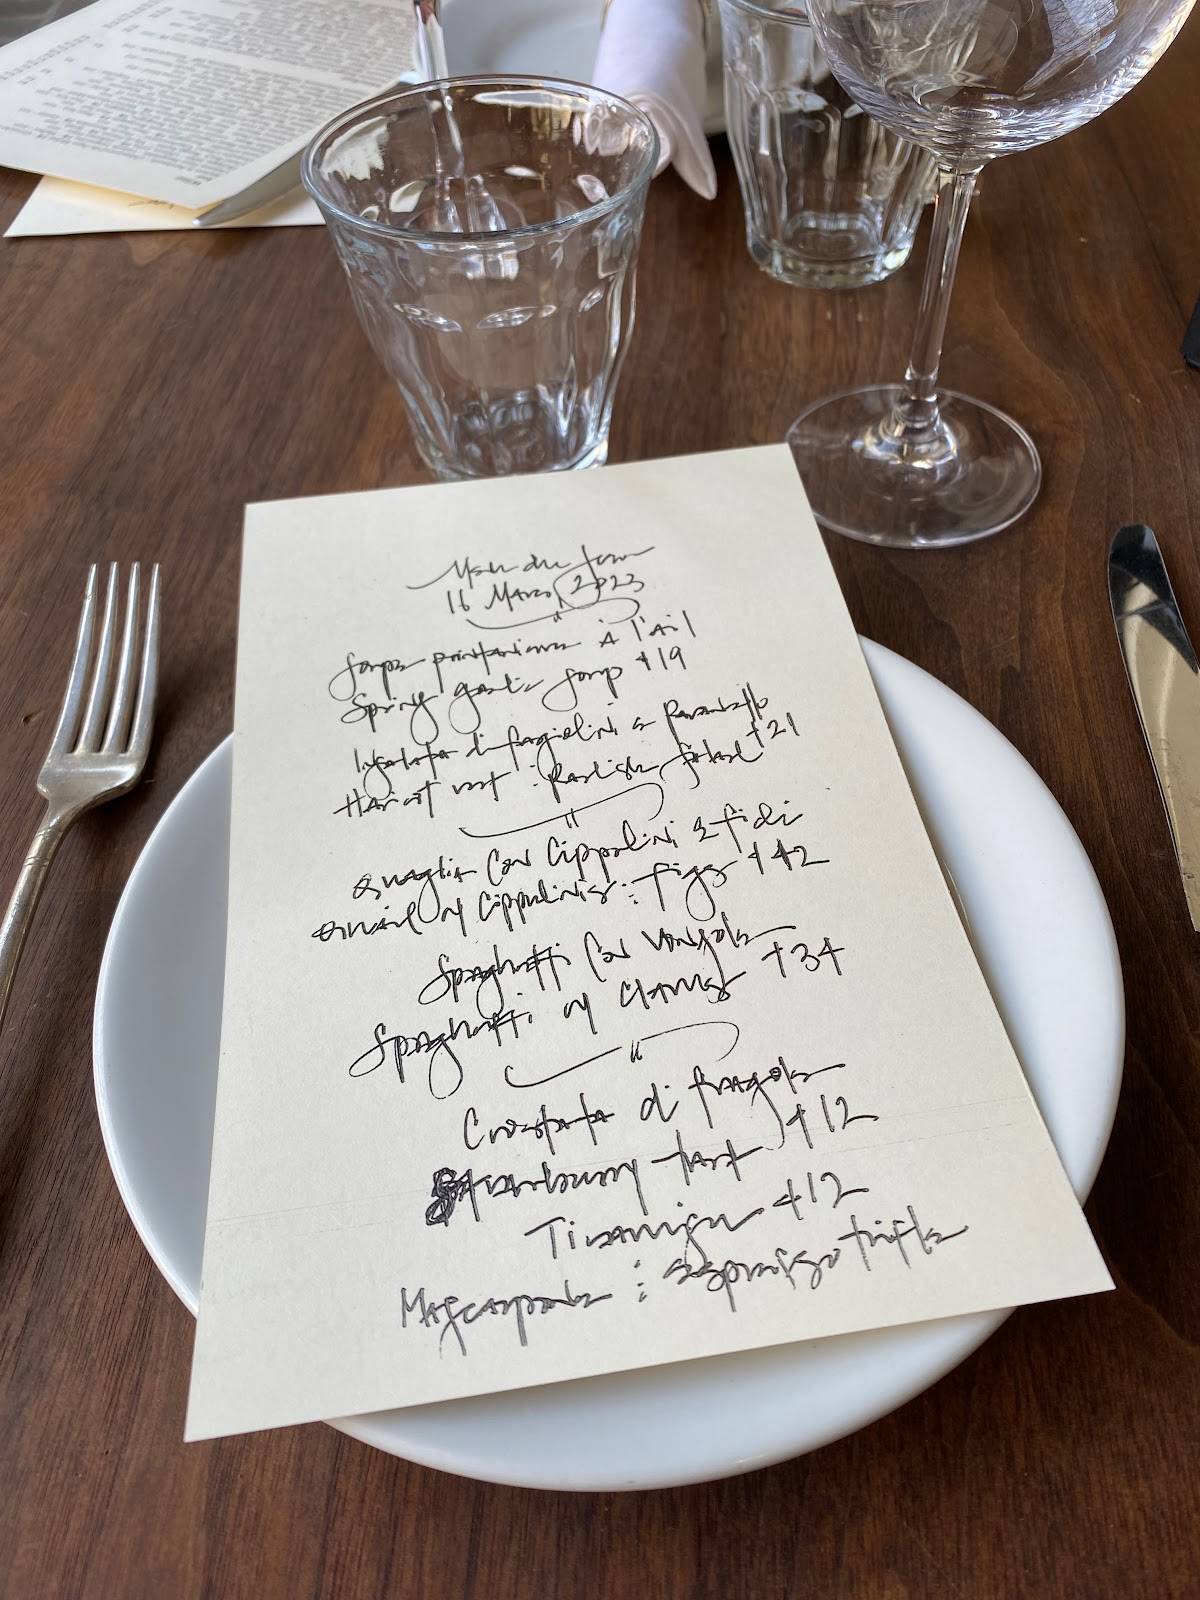 Menu du Jour
16 Mars, 2023
Soupe printaniere à l'ail
Spring garlic soup +19
Insalata di fagiolini e Ravanello
Haricot vert : Radish salad +21
Quaglia con Cippolini e fichi
Quail w/ Cippolinis : figs +42
Spaghetti con Vongole
Spaghetti w/ Clams +34
Crostata di fragole
Strawberry tart +12
Tiramisu +12
Mascarpone : espresso trifle